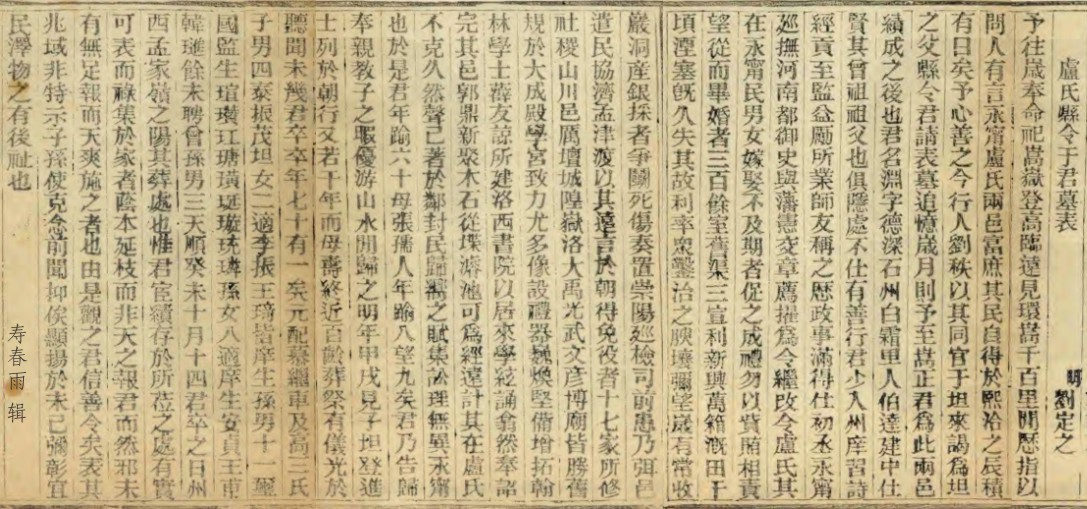 盧氏縣令于君墓表
明 劉定之
予往歲奉命祀嵩嶽登高臨遠見環嵩千百里間歷指以
問人有言永甯盧氏兩邑富庶其民自得於熙洽之辰積
有日矣予心善之今行人劉秩以其同官于坦來謁爲坦
之父縣令君請表墓追憶歲月則予至嵩正君爲此兩邑
績成之後也君名淵字德深石州白霜里人伯達建中仕
賢其曾祖祖父也俱隱處不仕有善行君少入州庠習詩
經貢至監益勵所業師友稱之歷政事滿得仕初丞永甯
廵撫河南都御史與藩憲交章薦擢爲令繼改令盧氏其
在永甯民男女嫁娶不及期者促之成禮勿以貲賄相責
望從而畢婚者三百餘室舊渠三宣利新興萬箱溉田千
頃湮塞旣久失其故利率衆鑿治之腴壤彌望歲有常收
巖洞産銀採者爭鬬死傷奏置崇陽廵檢司前患乃弭邑
遣民協濟孟津渡以其遠言於朝得免役者十七家所修
社稷山川邑厲壇城隍嶽洛大禹光武文彦博廟皆勝舊
規於大成殿學宫致力尤多像設禮器巍煥堅備增拓翰
林學士薛友諒所建洛西書院以居來學絃誦翕然奉詔
完其邑郭鼎新聚木石從堞濬池可爲經遠計其在盧氏
不克久然聲已著於鄰封民歸 之賦集訟理無異永甯
也於是君年踰六十母張孺人年踰八望九矣君乃告歸
奉親敎子之暇優游山水間歸之明年甲戌見子坦登進
士列於朝行又若干年而母壽終近百齡葬祭有儀光於
聽聞未幾君卒卒年七十有一矣元配秦繼車及高三氏
子男四泰振茂坦女二適李振王琦皆庠生孫男十一璽
國監生瑄瓚玒瑭璜珽璇琉璘孫女八適庠生安貞王甫
韓璡餘未聘曾孫男三天順癸未十月十四君卒之日州
西孟家嶺之陽其葬處也惟君宦績存於所莅之處有實
可表而祿集於家者蔭本延枝而非天之報君而然邪未
有無足報而天爽施之者也由是觀之君信善令矣表其
兆域非特示子孫使克念前聞抑俟顯揚於未已彌彰宜
民澤物之有後祉也
寿春雨 辑